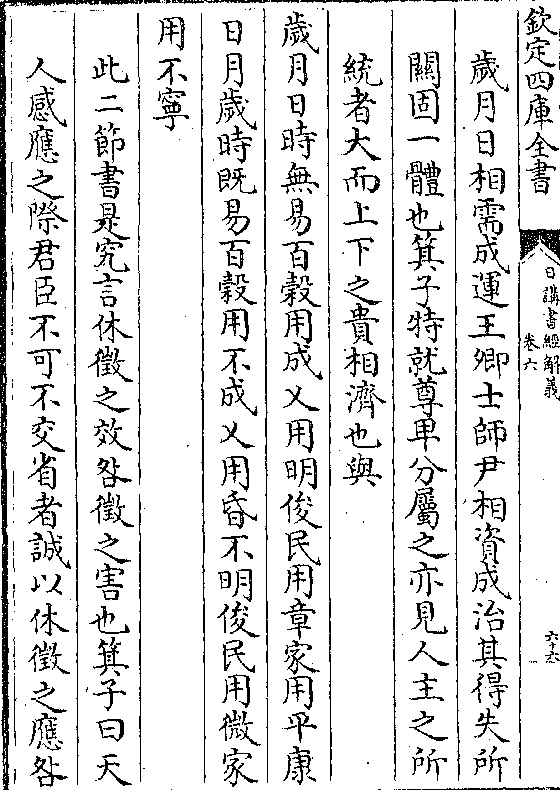 欽定四庫全書
日講書經解義
卷六
六十六
歲月日相需成運王卿士師尹相資成治其得失所
關固一體也箕子特就尊卑分屬之亦見人主之所
統者大而上下之貴相濟也與
歲月日時無易百穀用成乂用明俊民用章家用平康
日月歲時既易百穀用不成乂用昏不明俊民用微家
用不寧
此二節書是究言休徵之效咎徵之害也箕子曰天
人感應之際君臣不可不交省者誠以休徵之應咎